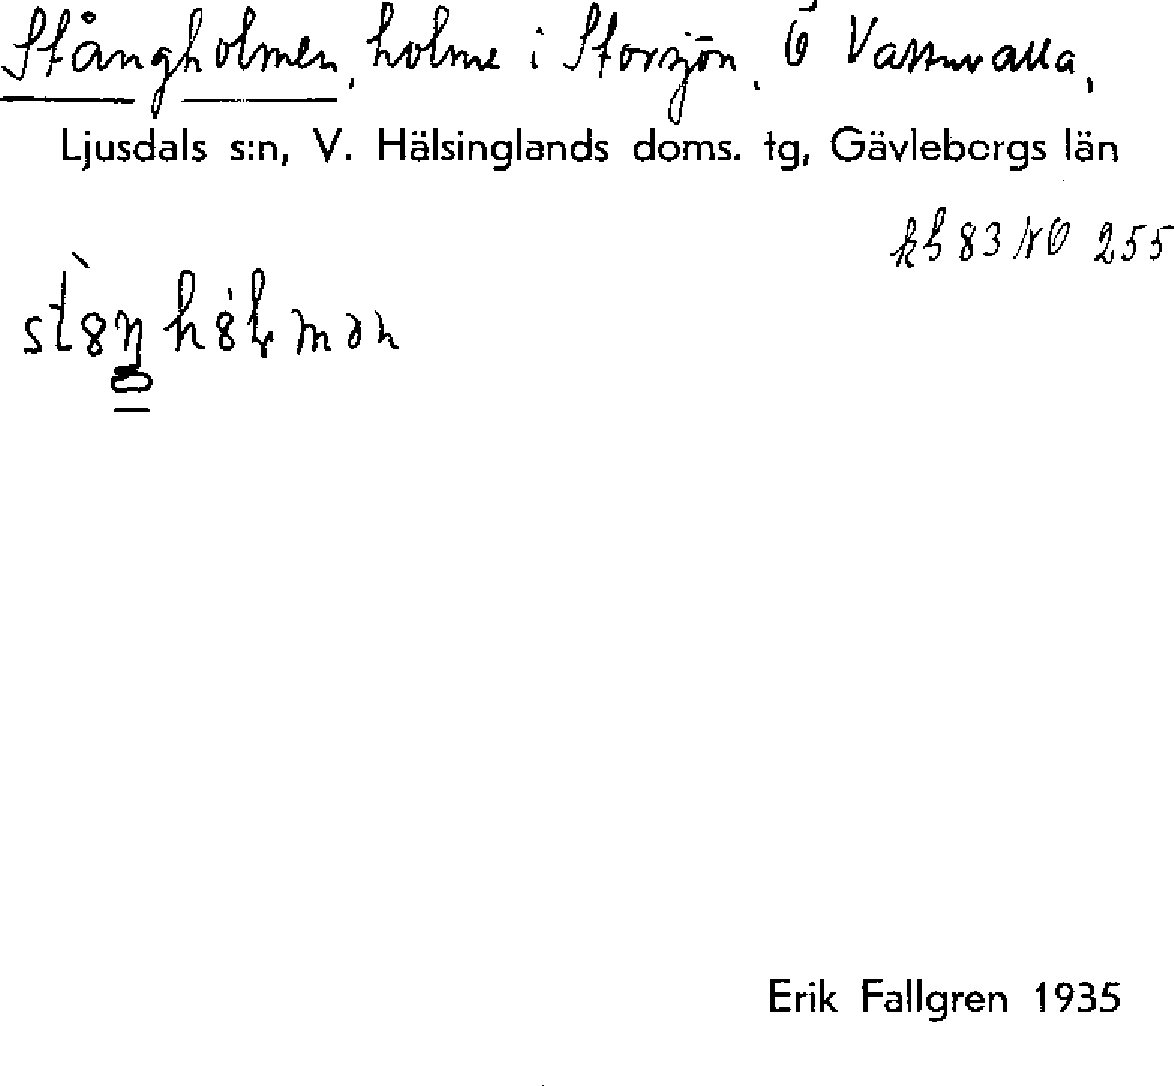 Stångholmen, holme i Storsjön, Ö Vassuvalla,
Ljusdals s:n, V. Hälsinglands doms. tg, Gävleborgs län
kb 83 NO 255
Erik Fallgren 1935